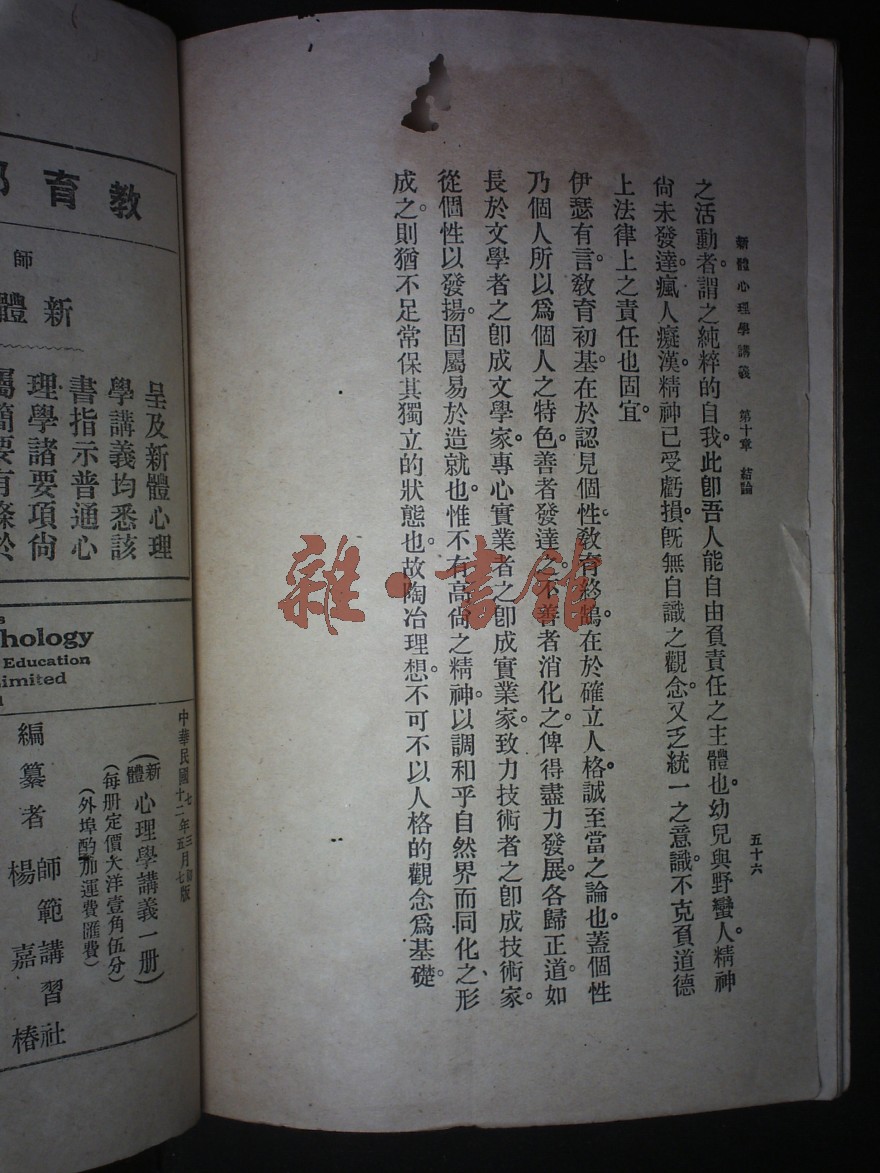 新體心理學講義　第十章　結論　五十六
之活動者。謂之純粹的自我。此卽吾人能自由負責任之主體也。幼兒與野蠻人。精神
尙未發達。瘋人癡漢。精神已受虧損。旣無自識之觀念。又乏統一之意識。不克負道德
上法律上之責任也固宜。
伊瑟有言。敎育初基。在於認見個性。敎育終鵠。在於確立人格。誠至當之論也。蓋個性
乃個人所以爲個人之特色。善者發達之。不善者消化之。俾得盡力發展。各歸正道。如
長於文學者之卽成文學家。專心實業者之卽成實業家。致力技術者之卽成技術家。
從個性以發揚。固屬易於造就也。惟不有高尙之精神。以調和乎自然界而同化之、形
成之。則猶不足常保其獨立的狀態也。故陶冶理想。不可不以人格的觀念爲基礎。
雜·書館
教育
師
新體
呈及新體心理
學講義均悉該
書指示普通心
理學諸要項尙
屬簡要有條於
hology
Education
imited
中華民國十二年五月七版
(新體心理學講義一册)
(每册定價大洋壹角伍分)
(外埠酌加運費匯費)
編纂者
師範講習社
楊嘉椿